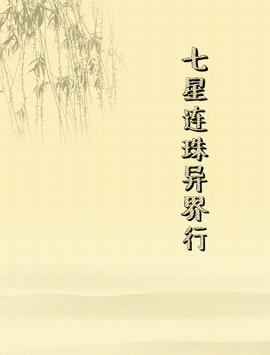 七星连珠异界行